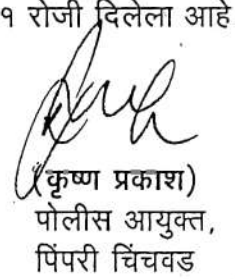 १ रोजी दिलेला आहे
(कृष्ण प्रकाश)
पोलीस आयुक्त,
पिंपरी चिंचवड